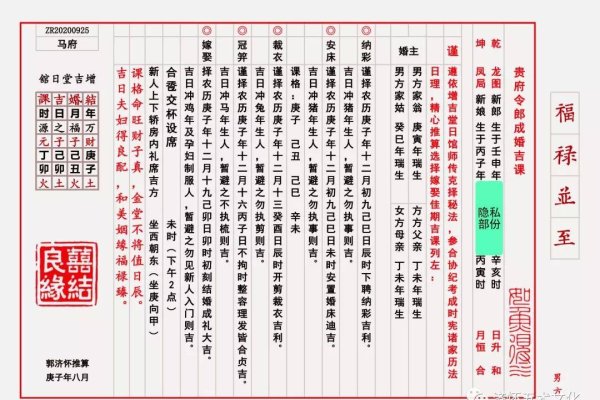 福禄並至
男方
贵府令郎成婚吉课
乾 龙图 新郎 生于壬申年 私份 辛亥时 日升 和
坤 凤局 新娘 生于丙子年 隐部 丙寅时 月恒 合
谨 遵依增吉堂日馆师传克择秘法，参合协纪考成时宪诸家历法
日理，精心推算选择嫁娶佳期吉课列左：
婚主 男方家翁 庚寅年瑞生 方方父亲 丁未年瑞生
男方家姑 癸巳年瑞生 女方母亲 丁未年瑞生
◎纳彩 谨择农历庚子年十二月初九己巳日辰时下聘纳彩吉利。
吉日冲猪年生人，暂避之勿执事则吉。
◎安床 谨择农历庚子年十二月初九己巳日未时安置婚床迪吉。
吉日冲猪年生人，暂避之勿执事则吉。
课格：庚子 己丑 己巳 辛未
◎裁衣 谨择农历庚子年十二月十三癸酉日辰时开剪裁衣吉利。
吉日冲兔年生人，暂避之勿执剪则吉。
◎冠笄 谨择农历庚子年十二月十六丙子日不拘时整容理发皆合贞吉。
吉日冲马年生人，暂避之不执梳则吉。
◎嫁娶 择农历庚子年十二月十九己卯日卯时初刻结婚成礼大吉。
吉日冲鸡年及孕妇制服人，暂避之勿见新人入门则吉。
合卺交杯设席 未时（下午2点）
新人上下轿房内礼席吉方 坐西朝东（坐庚向甲）
课格命旺财子真，金堂不将值日辰。
吉日夫妇得良配，和美姻缘福禄臻。
ZR20200925
马府
增吉堂日馆
结年万庚子土
婚月福己丑火
吉日之己卯土
课时源丁卯火
元子财
囍结良缘
郭济怀推算
庚子年八月